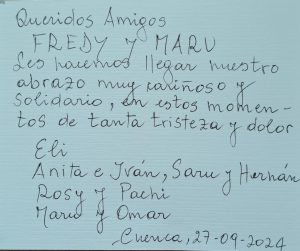 Queridos Amigos
FREDY y MARU
Les hacemos llegar nuestro
abrazo muy cariñoso y
solidario, en estos momen-
tos de tanta tristeza y dolor
Eli
Anita e Iván, Saru y Hernán
Rosy y Pachi
Maru y Omar
Cuenca, 27-09-2024